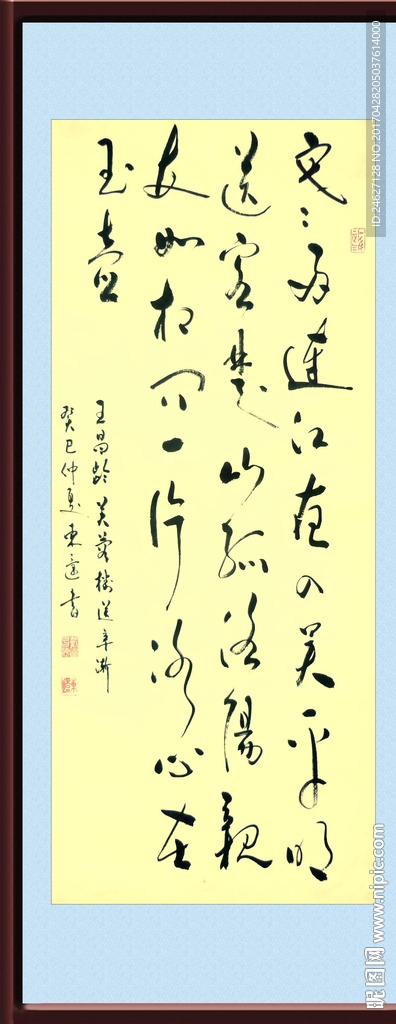 寒雨連江夜入吳平明
送客楚山孤洛陽親
友如相問一片冰心在
玉壺
王昌齡芙蓉樓送辛漸
癸巳仲夏東書
ID:24627128 NO.20170428205037614000
昵图网 www.nipic.com